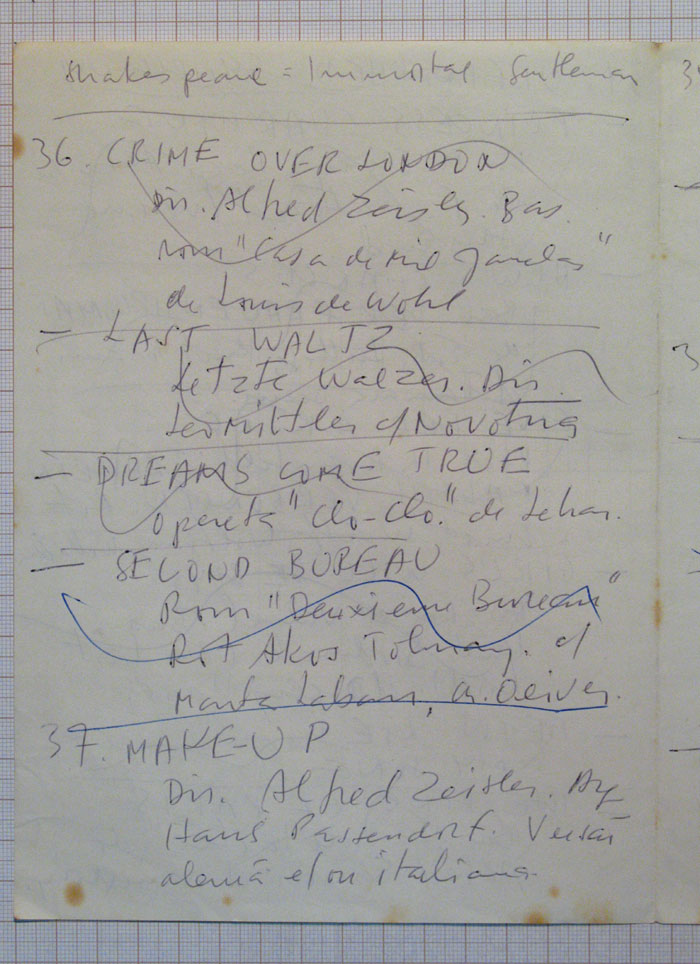 Shakespeare = Immortal Gentleman
36. CRIME OVER LONDON
Dir. Alfred Zeisler. Bas.
rom "Casa de mil janelas"
de Louis de Wohl
— LAST WALTZ
Letzte Walzer. Dir.
Leo Mittler c/ Novotna
— DREAMS COME TRUE
Opereta "Clo-Clo." de Lehar.
— SECOND BUREAU
Rom "Deuxieme Bureau"
Rot Akos Tolnay. c/
Marta Labarr, A. Oliver.
37. MAKE-UP
Dir. Alfred Zeisler. Arg
Hans Passendorf. Versão
alemã e/ou italiana.